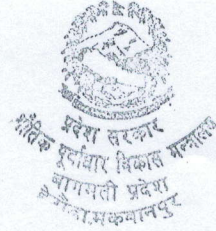 प्रदेश सरकार
भौतिक पूर्वाधार विकास मन्त्रालय
बागमती प्रदेश
हेटौंडा,मकवानपुर